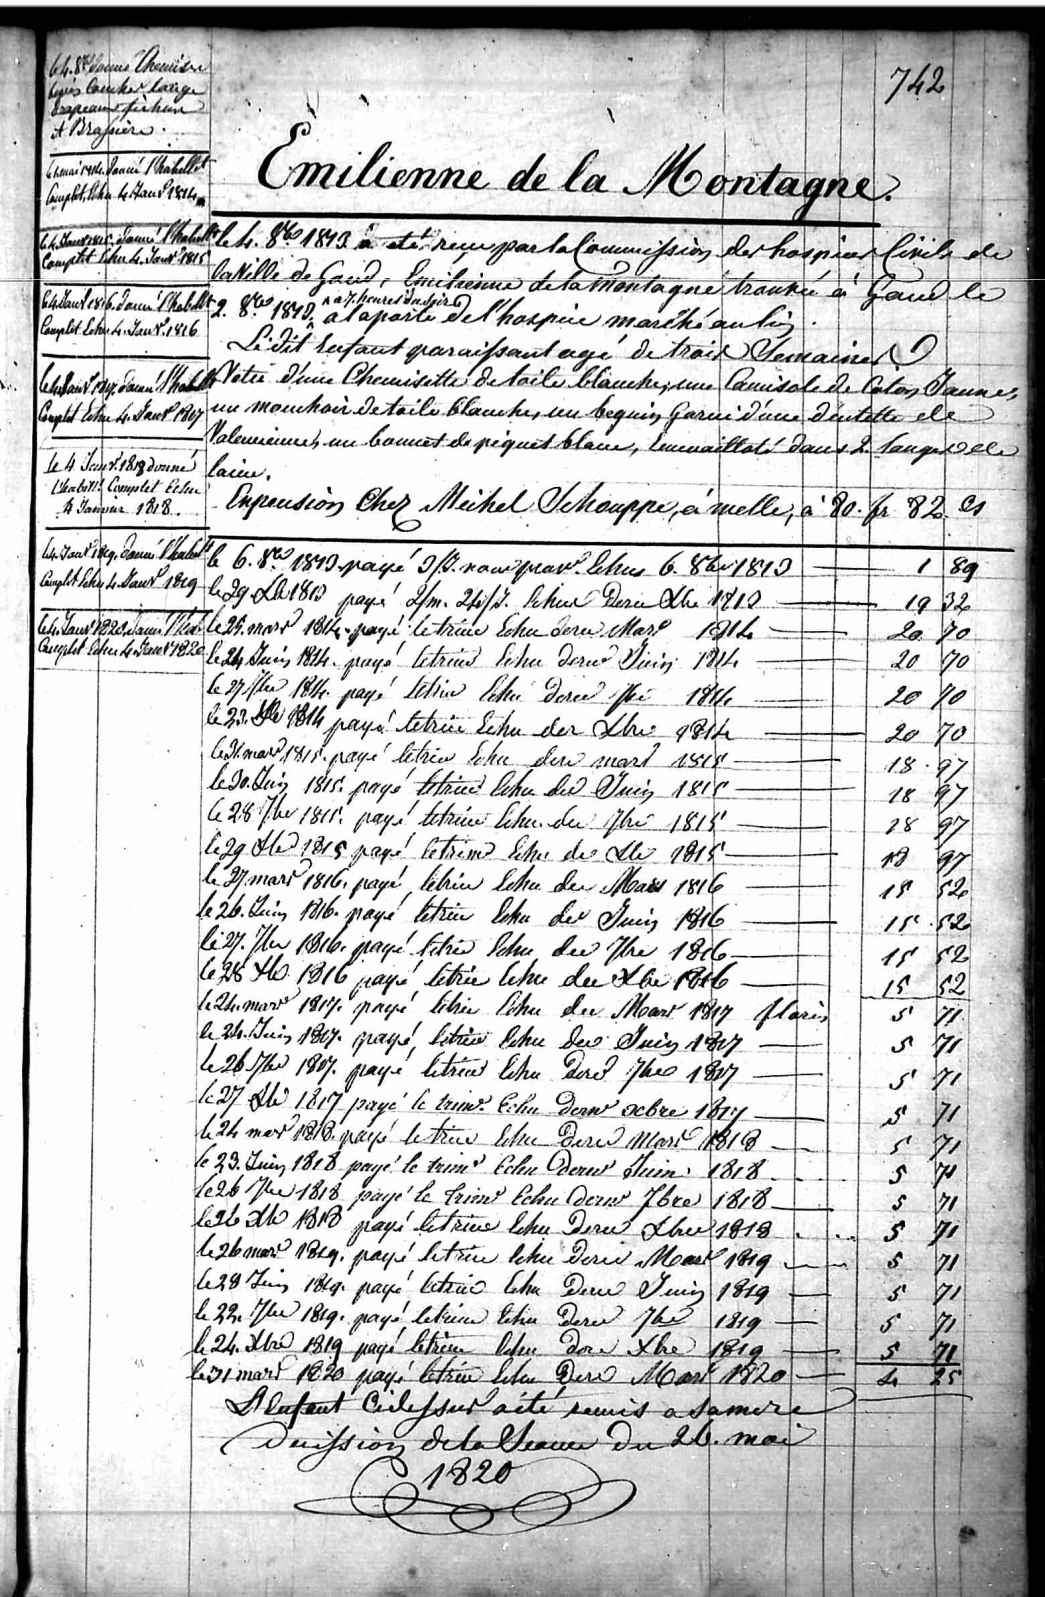 742
Emilienne de la Montagne.
le 4. 8bre 1813 a été reçu par la Commission des hospices Civils de
la Ville de Gand, Emilienne de la Montagne trouvée à Gand le
2. 8bre 1813. à 7 heures du soir à la porte de l'hospice marché au lin.
Le dit Enfant paraissant agé de trois Semaines
Vetu d'une Chemisette de toile blanche, une Camisole de Coton Jaune,
un mouchoir de toile blanche, un beguin garni d'une dentelle de
Valenciennes, un bonnet de piquet blanc, Emmailloté dans 2 langes de
laine.
En pension Chez Michel Schouppe, à melle, à 80. fr 82. Cs
le 4. 8bre donné Chemise
béguin lange
drapeaux fichu
et Brassière.
le 4 mai 1814. donné l'habillt
Complet Echu 4 Janvr 1814
le 4. Janvr 1815. donné l'habillt
Complet Echu 4. Janvr 1815
le 4 Janvr 1816. donné l'habillt
Complet Echu 4. Janvr 1816
le 4 Janvr 1817. donné l'habillt
Complet Echu 4 Janvr 1817
le 4 Janvr 1818 donné
l'habillt Complet Echu
4 Janvier 1818.
le 4. Janvr 1819. donné l'habillt
Complet Echu 4. Janvr 1819
le 4 Janvr 1820. donné l'habt
Complet Echu 4. Janvr 1820
le 6. 8bre 1813 payé 3/J. Echus 6. 8bre 1813 1 89
le 29 Xbre 1813 payé 2/m. 24/J. Echu Dernr Xbre 1813 19 32
le 25. mars 1814. payé le trim Echu dernr Mars 1814 20 70
le 24 Juin 1814. payé le trim Echu dernr Juin 1814 20 70
le 27. 7bre 1814. payé le trim Echu dernr 7bre 1814 20 70
le 23. Xbre 1814 payé le trim Echu der Xbre 1814 20 70
le 21. mars 1815. payé le trim Echu dern mars 1815 18 97
le 20. Juin 1815. payé le trim Echu der Juin 1815 18 97
le 28 7bre 1815. payé le trim Echu der 7bre 1815 18 97
le 29 Xbre 1815 payé le trim Echu der Xbre 1815 18 97
le 27 mars 1816. payé le trim Echu der Mars 1816 15 52
le 26. Juin 1816. payé le trim Echu der Juin 1816 15 52
le 27. 7bre 1816. payé le trim Echu der 7bre 1816 15 52
le 28 Xbre 1816 payé le trim Echu der Xbre 1816 15 52
le 24 mars 1817. payé le trim Echu der Mars 1817 florins 5 71
le 24. Juin 1817. payé le trim Echu der Juin 1817 5 71
le 26 7bre 1817. payé le trim Echu Dernr 7bre 1817 5 71
le 27 Xbre 1817 payé le trimr Echu dernr xcbre 1817 5 71
le 24 mars 1818. payé le trim Echu Dernr Mars 1818 5 71
le 23. Juin 1818 payé le trimr Echu dernr Juin. 1818 5 71
le 26 7bre 1818 payé le trimr Echu dernr 7bre 1818 5 71
le 26 Xbre 1818 payé le trim Echu Dernr Xbre 1818 5 71
le 26 mars 1819. payé le trim Echu Dernr Mars 1819 5 71
le 28 Juin 1819. payé le trim Echu Dernr Juin 1819 5 71
le 22. 7bre 1819. payé le trim Echu Dernr 7bre 1819 5 71
le 24. Xbre 1819 payé le trim Echu Dernr Xbre 1819 5 71
le 31 mars 1820 payé le trim Echu Dernr Mars 1820 4 25
L'Enfant Ci dessus a été remis a sa mere
Decission de la Seance du 26. mai
1820